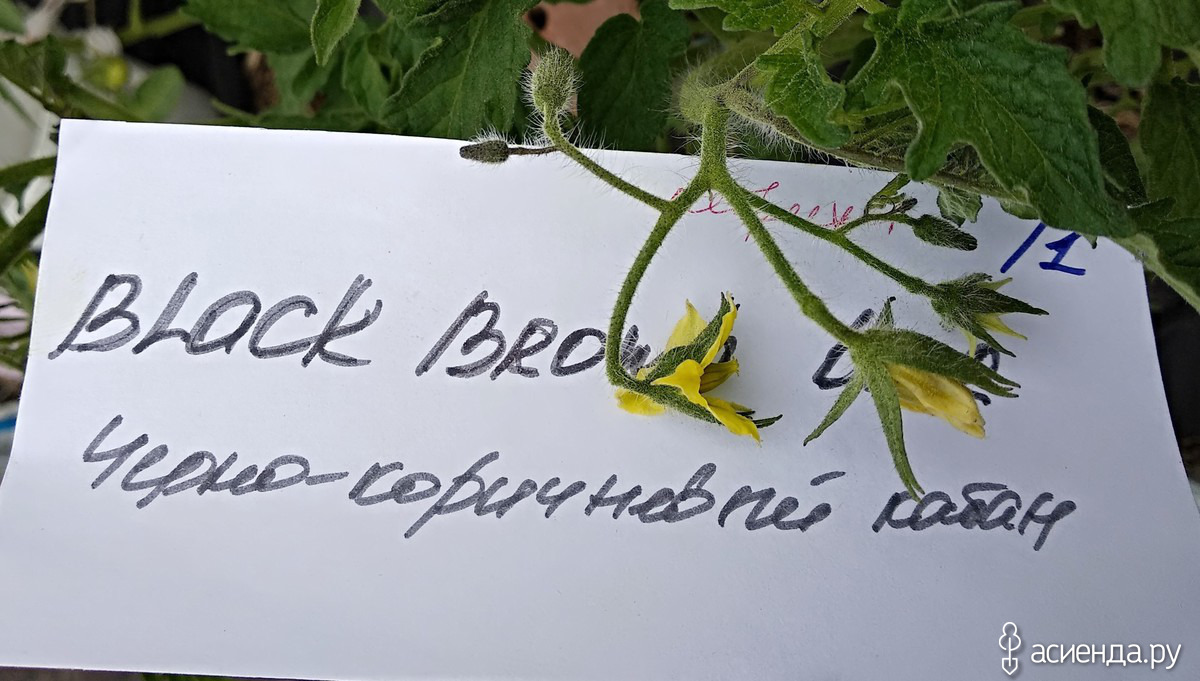 /1
BLACK BROWN
Черно-коричневый кабан
асиенда.ру